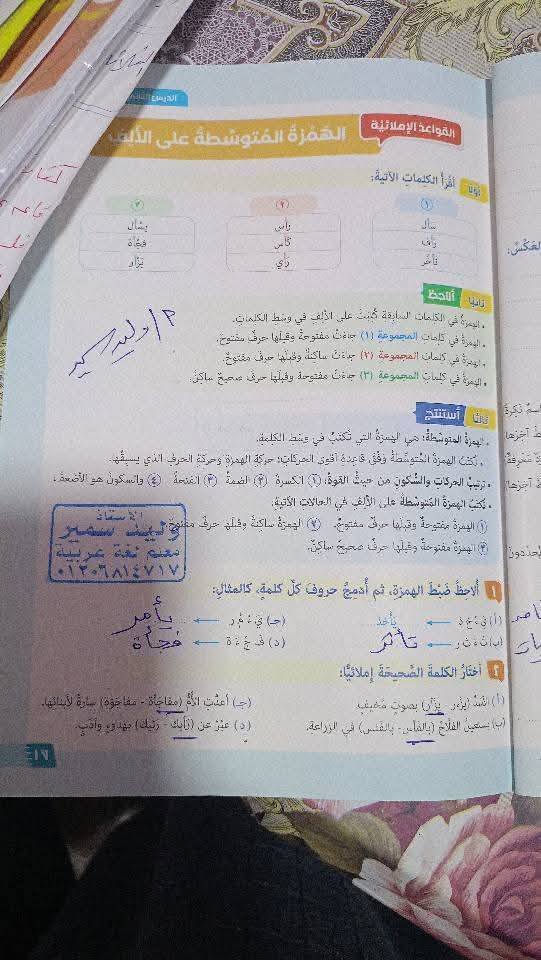 الدرس
القواعد الإملائية
الهمزة المتوسطة على الألف
أولا
أقرأ الكلمات الآتية:
١
سأل
رأف
تأخر
٢
رأس
كأس
رأي
٣
يسأل
فجأة
يزأر
ثانيا
ألاحظ
• الهمزة في الكلمات السابقة كتبت على الألف في وسط الكلمات.
• الهمزة في كلمات المجموعة (١) جاءت مفتوحة وقبلها حرف مفتوح.
• الهمزة في كلمات المجموعة (٢) جاءت ساكنة وقبلها حرف مفتوح.
• الهمزة في كلمات المجموعة (٣) جاءت مفتوحة وقبلها حرف صحيح ساكن.
م/ وليد سمير
ثالثا
أستنتج
• الهمزة المتوسطة: هي الهمزة التي تكتب في وسط الكلمة.
• تكتب الهمزة المتوسطة وفق قاعدة أقوى الحركات: حركة الهمزة وحركة الحرف الذي يسبقها.
• ترتيب الحركات والسكون من حيث القوة: ١ الكسرة ٢ الضمة ٣ الفتحة ٤ والسكون هو الأضعف.
• تكتب الهمزة المتوسطة على الألف في الحالات الآتية:
١ الهمزة مفتوحة وقبلها حرف مفتوح. ٢ الهمزة ساكنة وقبلها حرف مفتوح.
٣ الهمزة مفتوحة وقبلها حرف صحيح ساكن.
الأستاذ
وليد سمير
معلم لغة عربية
٠١٢٠٦٨١٤٧١٧
١ ألاحظ ضبط الهمزة، ثم أدمج حروف كل كلمة، كالمثال:
(أ) يَ ءْ خُ ذ يأخذ (جـ) يَ ءْ مُ ر يأمر
(ب) تَ ءَ ثَّ ر تأثر (د) فَ جْ ءَ ة فجأة
٢ أختار الكلمة الصحيحة إملائيًّا:
(أ) الأسد (يزءر - يزأر) بصوت مخيف. (جـ) أعدت الأم (مفاجأة - مفاجؤة) سارة لأبنائها.
(ب) يستعمل الفلاح (بالفأس - بالفئس) في الزراعة. (د) عبر عن (رأيك - رئيك) بهدوء وأدب.
١٧